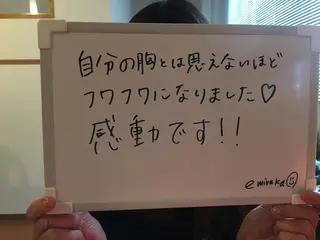 自分の胸とは思えないほど
フワフワになりました♡
感動です!!
emiraka☺